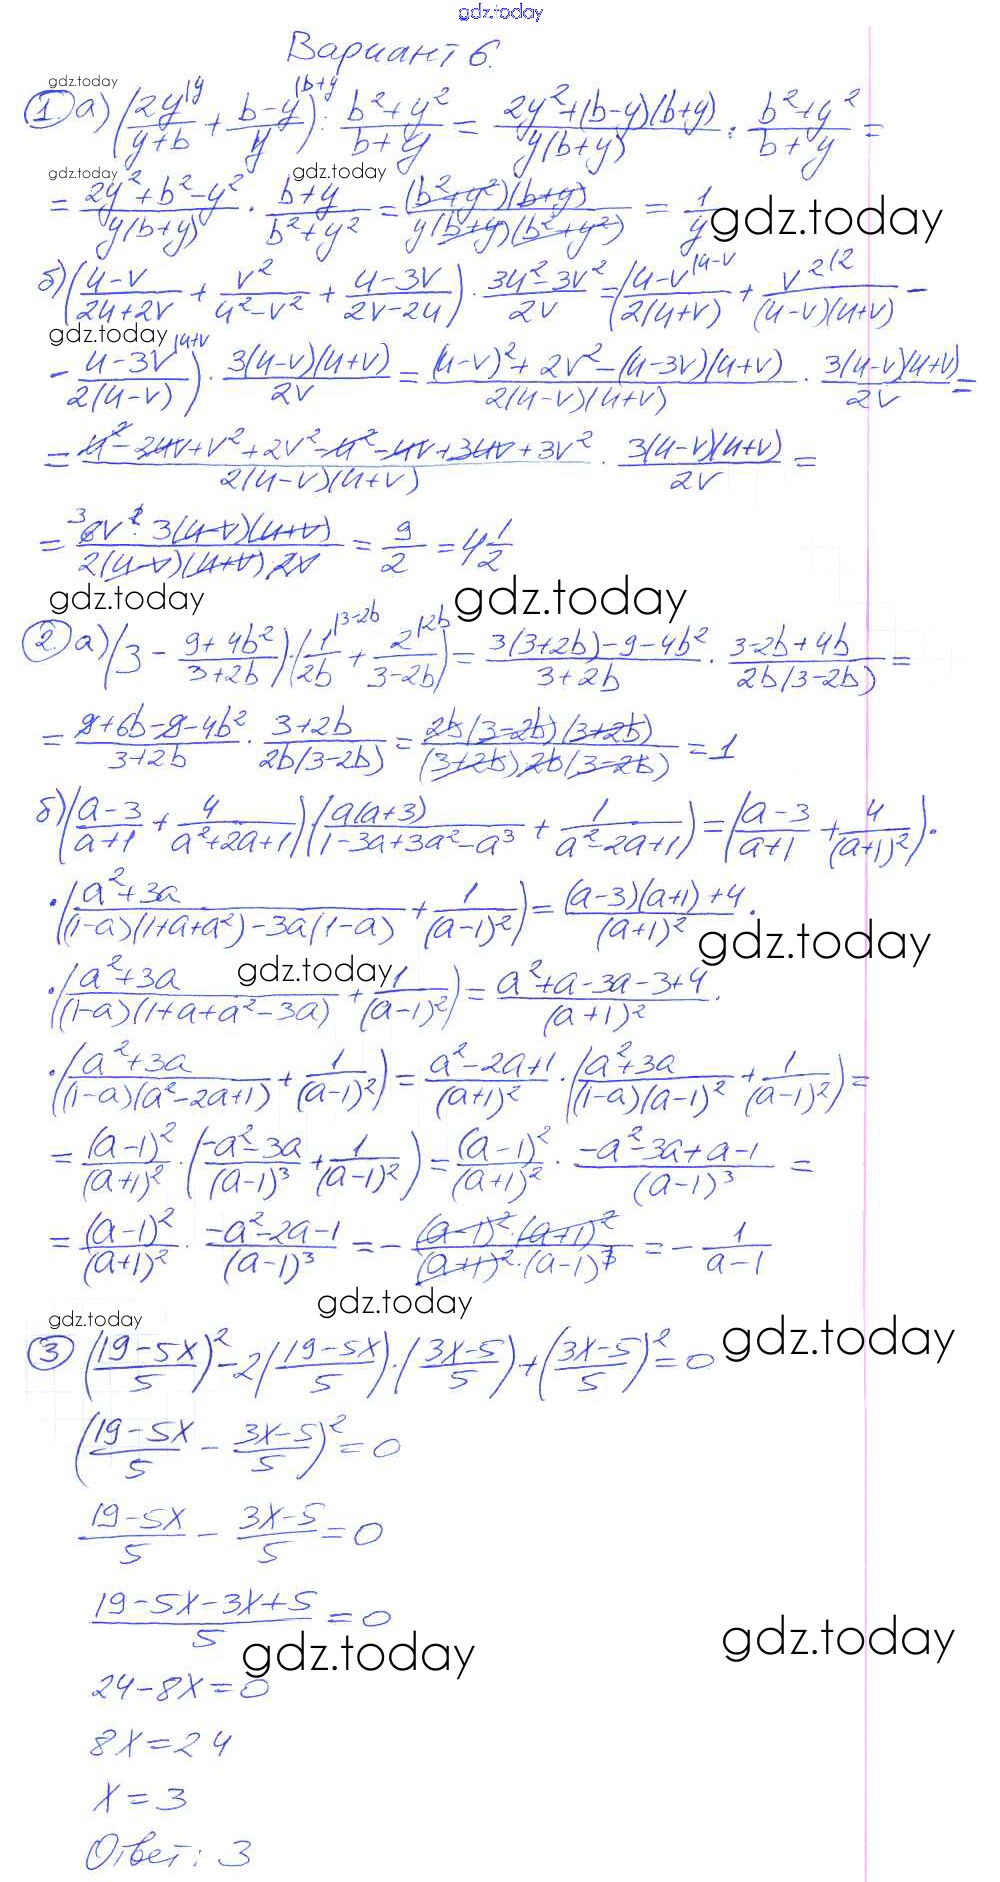 gdz.today
Вариант 6.
gdz.today
① а) (2y|y/(y+b) + (b-y)|b+y/y) : (b²+y²)/(b+y) = (2y²+(b-y)(b+y))/(y(b+y)) : (b²+y²)/(b+y) =
gdz.today gdz.today
= (2y²+b²-y²)/(y(b+y)) · (b+y)/(b²+y²) = ((b²+y²)(b+y))/(y(b+y)(b²+y²)) = 1/y gdz.today
б) ((u-v)/(2u+2v) + v²/(u²-v²) + (u-3v)/(2v-2u)) · (3u²-3v²)/2v = ((u-v)|u-v/(2(u+v)) + v²|2/((u-v)(u+v)) -
gdz.today
- (u-3v)|u+v/(2(u-v))) · (3(u-v)(u+v))/2v = ((u-v)²+2v²-(u-3v)(u+v))/(2(u-v)(u+v)) · (3(u-v)(u+v))/2v =
= (u²-2uv+v²+2v²-u²-uv+3uv+3v²)/(2(u-v)(u+v)) · (3(u-v)(u+v))/2v =
= (3 6v² · 3(u-v)(u+v))/(2(u-v)(u+v) 2v) = 9/2 = 4 1/2
gdz.today gdz.today
② а) (3 - (9+4b²)/(3+2b)) · (1|3-2b/2b + 2|2b/(3-2b)) = (3(3+2b)-9-4b²)/(3+2b) · (3-2b+4b)/(2b(3-2b)) =
= (9+6b-9-4b²)/(3+2b) · (3+2b)/(2b(3-2b)) = (2b(3-2b)(3+2b))/((3+2b)2b(3-2b)) = 1
б) ((a-3)/(a+1) + 4/(a²+2a+1)) (a(a+3)/(1-3a+3a²-a³) + 1/(a²-2a+1)) = ((a-3)/(a+1) + 4/(a+1)²) ·
· ((a²+3a)/((1-a)(1+a+a²)-3a(1-a)) + 1/(a-1)²) = ((a-3)(a+1)+4)/(a+1)² ·
gdz.today
gdz.today
· ((a²+3a)/((1-a)(1+a+a²-3a)) + 1/(a-1)²) = (a²+a-3a-3+4)/(a+1)² ·
· ((a²+3a)/((1-a)(a²-2a+1)) + 1/(a-1)²) = (a²-2a+1)/(a+1)² · ((a²+3a)/((1-a)(a-1)²) + 1/(a-1)²) =
= (a-1)²/(a+1)² · ((-a²-3a)/(a-1)³ + 1/(a-1)²) = (a-1)²/(a+1)² · (-a²-3a+a-1)/(a-1)³ =
= (a-1)²/(a+1)² · (-a²-2a-1)/(a-1)³ = - ((a-1)²·(a+1)²)/((a+1)²·(a-1)³) = - 1/(a-1)
gdz.today
gdz.today gdz.today
③ ((19-5x)/5)² - 2((19-5x)/5) · ((3x-5)/5) + ((3x-5)/5)² = 0
((19-5x)/5 - (3x-5)/5)² = 0
(19-5x)/5 - (3x-5)/5 = 0
(19-5x-3x+5)/5 = 0
gdz.today gdz.today
24-8x=0
8x=24
x=3
Ответ: 3